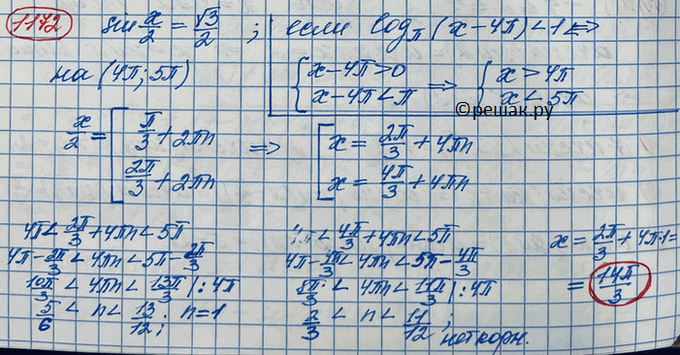 1172 sin x/2 = √3/2 ; если log_π (x-4π) < 1 ⟺
на (4π; 5π) { x-4π>0 ⟹ { x > 4π
x-4π<π x < 5π
©решак.ру
x/2 = [ π/3 + 2πn ⟹ [ x = 2π/3 + 4πn
2π/3 + 2πn x = 4π/3 + 4πn
4π < 2π/3 + 4πn < 5π
4π - 2π/3 < 4πn < 5π - 2π/3
10π/3 < 4πn < 13π/3 |: 4π
5/6 < n < 13/12; n=1
< 4π/3 + 4πn < 5π
4π - 4π/3 < 4πn < 5π - 4π/3
8π/3 < 4πn < 11π/3 |: 4π
2/3 < n < 11/12 ;
нет корн.
x = 2π/3 + 4π·1 =
= 14π/3